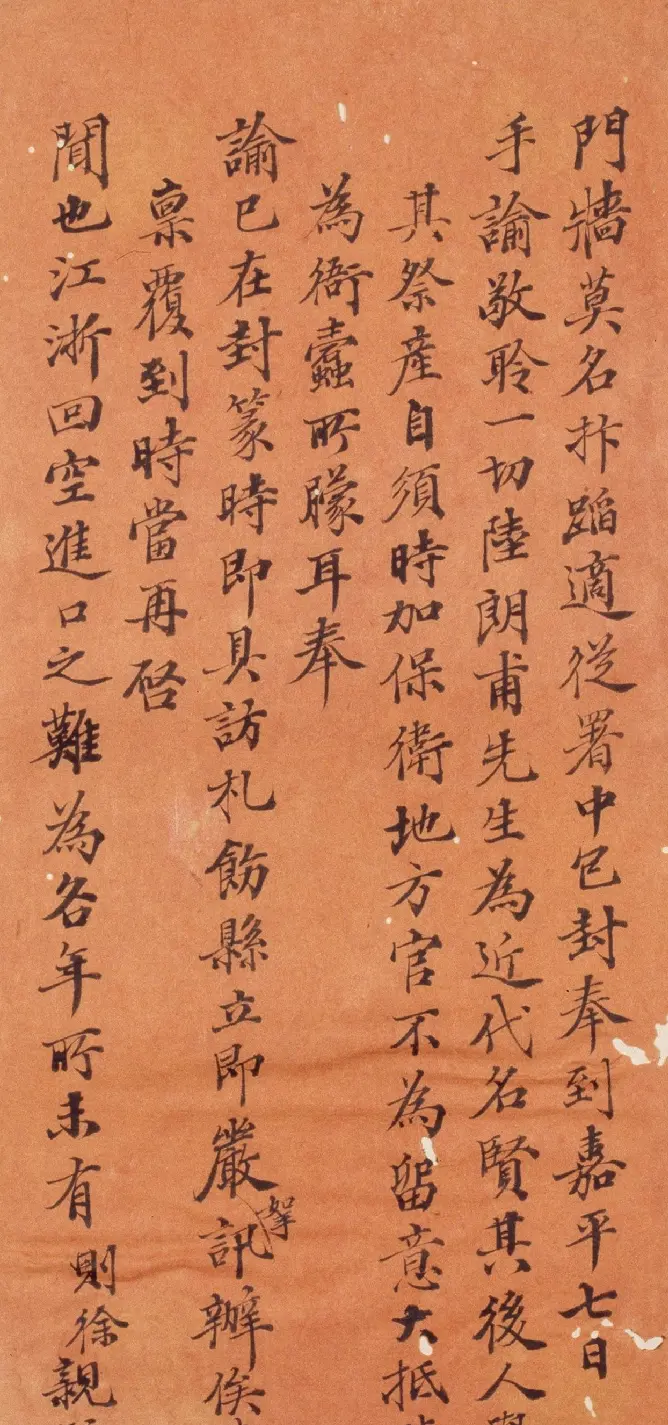 門牆莫名抃蹈適從署中包封奉到嘉平七日
手諭敬聆一切陸朗甫先生為近代名賢其後人
其祭產自須時加保衛地方官不為留意大抵
為衙蠹所矇耳奉
諭已在封篆時即具訪札飭縣立即嚴拏訊辦俟
稟覆到時當再啓
聞也江浙回空進口之難為各年所未有則徐親